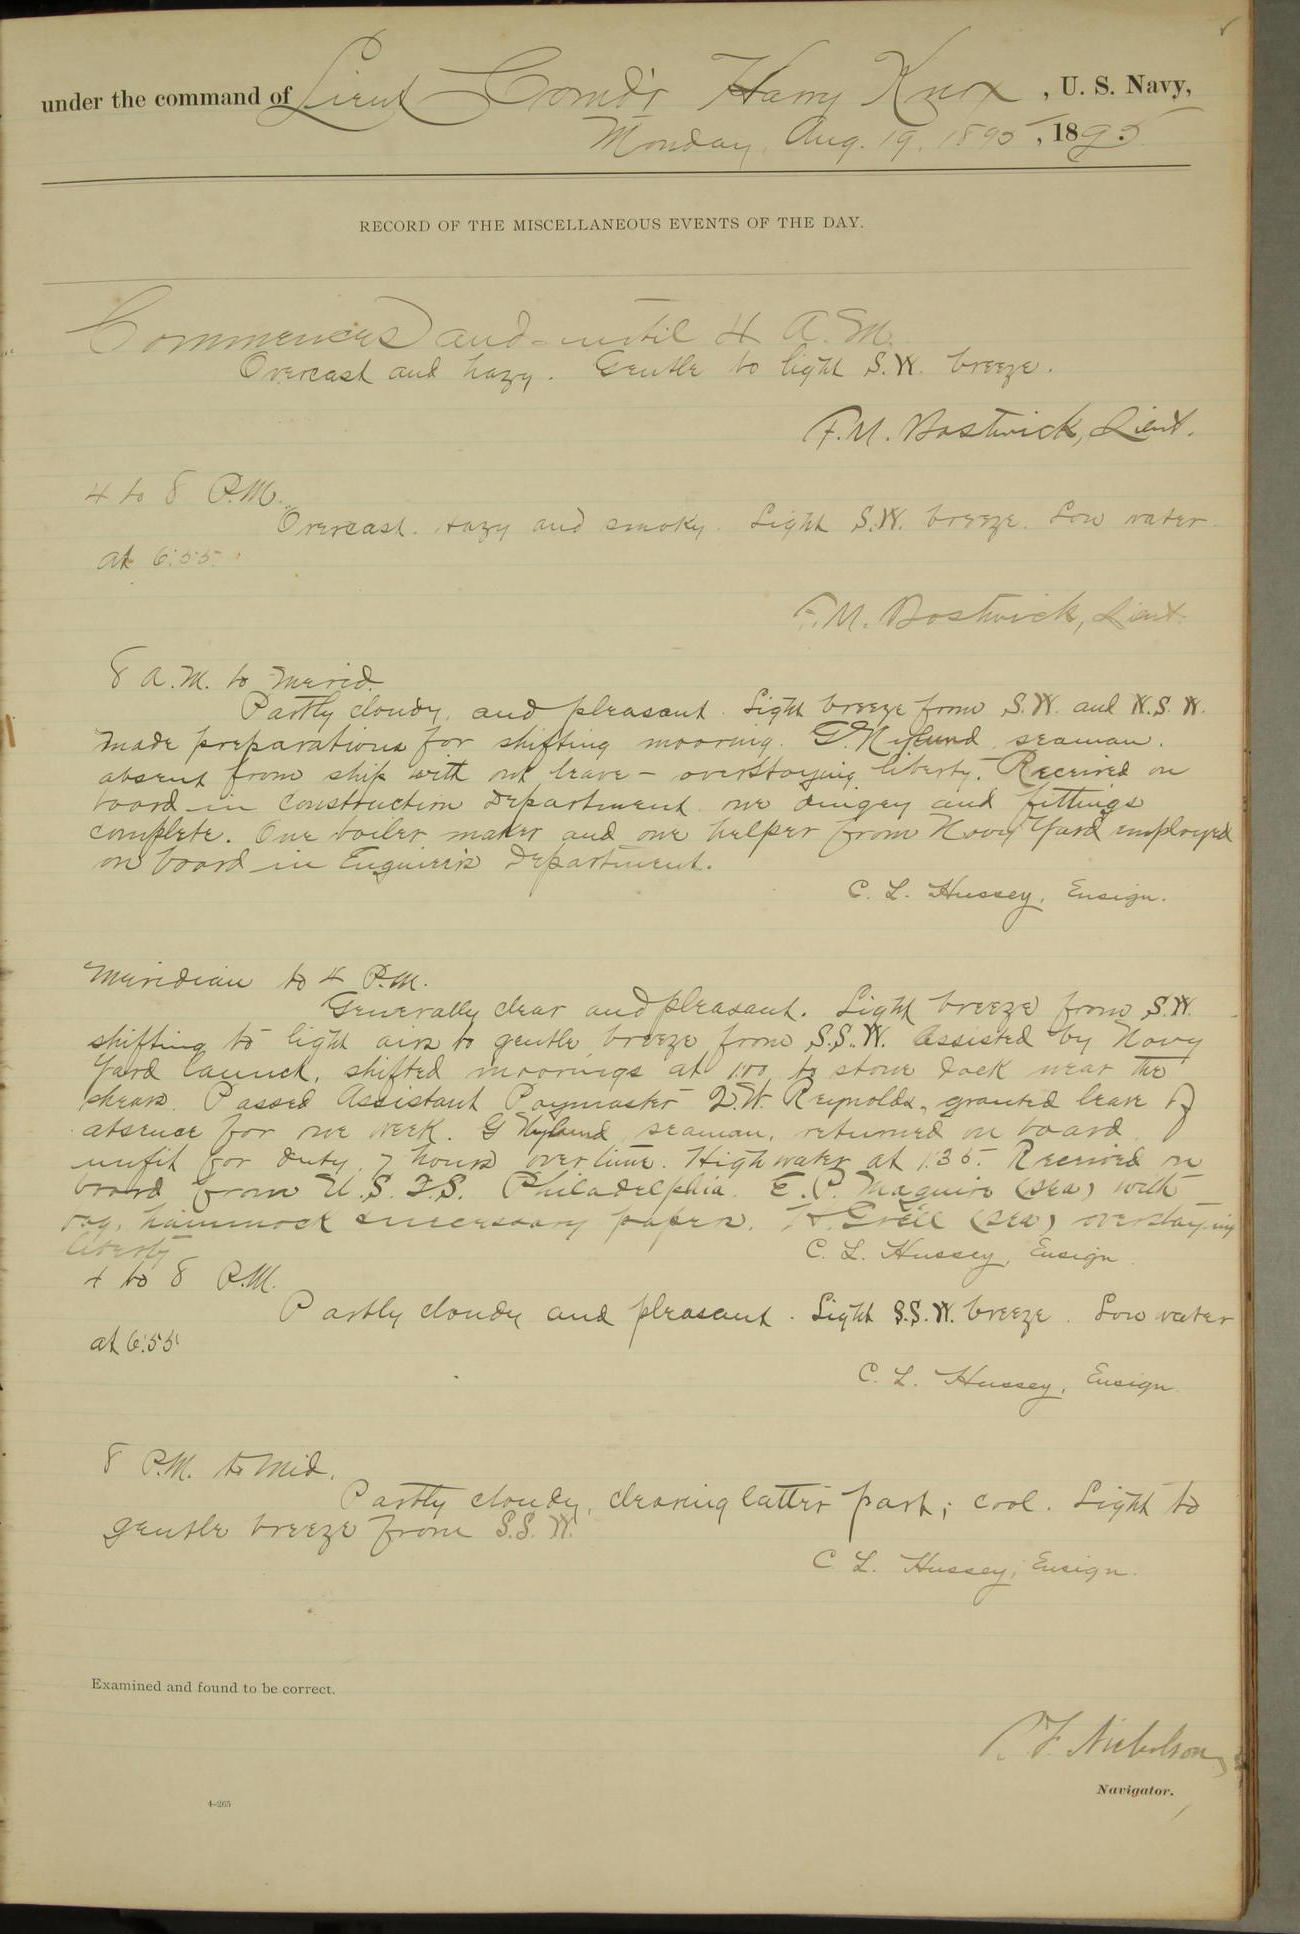 under the command of Lieut Comd'r Harry Knox , U. S. Navy,
Monday, Aug. 19, 1895 , 1895.
RECORD OF THE MISCELLANEOUS EVENTS OF THE DAY.
Commences and until 4 A.M.
Overcast and hazy. Gentle to light S.W. breeze.
F.M. Bostwick, Lieut.
4 to 8 P.M.
Overcast. Hazy and smoky. Light S.W. breeze. Low water
at 6:55.
F.M. Bostwick, Lieut.
8 A.M. to Merid.
Partly cloudy, and pleasant. Light breeze from S.W. and W.S.W.
Made preparations for shifting mooring. G. Nylund, seaman,
absent from ship with out leave - overstaying liberty. Received on
board in Construction Department one dingey and fittings
complete. One boiler maker and one helper from Navy Yard employed
on board in Engineer's Department.
C. L. Hussey, Ensign.
Meridian to 4 P.M.
Generally clear and pleasant. Light breeze from S.W.
shifting to light airs to gentle breeze from S.S.W. Assisted by Navy
Yard launch, shifted moorings at 1:00 to stone dock near the
shears. Passed Assistant Paymaster Reynolds, granted leave of
absence for one week. G Nylund, seaman, returned on board,
unfit for duty, 7 hours overtime. High water at 1:35. Received on
board from U.S.F.S. Philadelphia. E. P. Maguire (sea) with
bag, hammock & necessary papers. (sea) overstaying
liberty
C. L. Hussey, Ensign.
4 to 8 P.M.
Partly cloudy and pleasant. Light S.S.W. breeze. Low water
at 6:55
C. L. Hussey, Ensign
8 P.M. to Mid.
Partly cloudy, clearing latter part; cool. Light to
gentle breeze from S.S.W.
C. L. Hussey, Ensign.
Examined and found to be correct.
F. Nicholson,
Navigator.
4-265